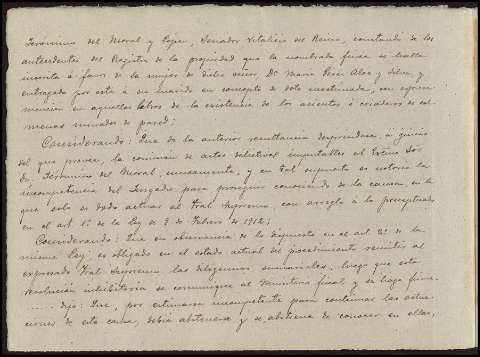 Jerónimo del Moral y López, Senador Vitalicio del Reino, constando de los
antecedentes del Registro de la propiedad que la nombrada finca se halla
inscrita á favor de la mujer de dicho señor, Dª María Pérez Aloe y Silva, y
entregada por esta á su marido en concepto de dote inestimada, con expresa
mención en aquellos libros de la existencia de los asientos ó corraleros de col-
menas murados de pared;
Considerando: Que de la anterior resultancia despréndese, á juicio
del que provee, la comisión de actos delictivos imputables al Exmo Sor
Dn Jerónimo del Moral, únicamente, y en tal supuesto es notoria la
incompetencia del Juzgado para proseguir conociendo de la causa, en la
que solo es dado actuar al Tral Supremo, con arreglo á lo preceptuado
en el art. 1º de la Ley de 9 de Febrero de 1912;
Considerando: Que en observancia de lo dispuesto en el art. 2º de la
misma Ley, es obligado en el estado actual del procedimiento remitir al
expresado Tral Supremo las diligencias sumariales, luego que esta
resolución inhibitoria se comunique al Ministerio fiscal y se haga firme
dijo: Que, por estimarse incompetente para continuar las actua-
ciones de esta causa, debía abstenerse y se abstiene de conocer en ellas,